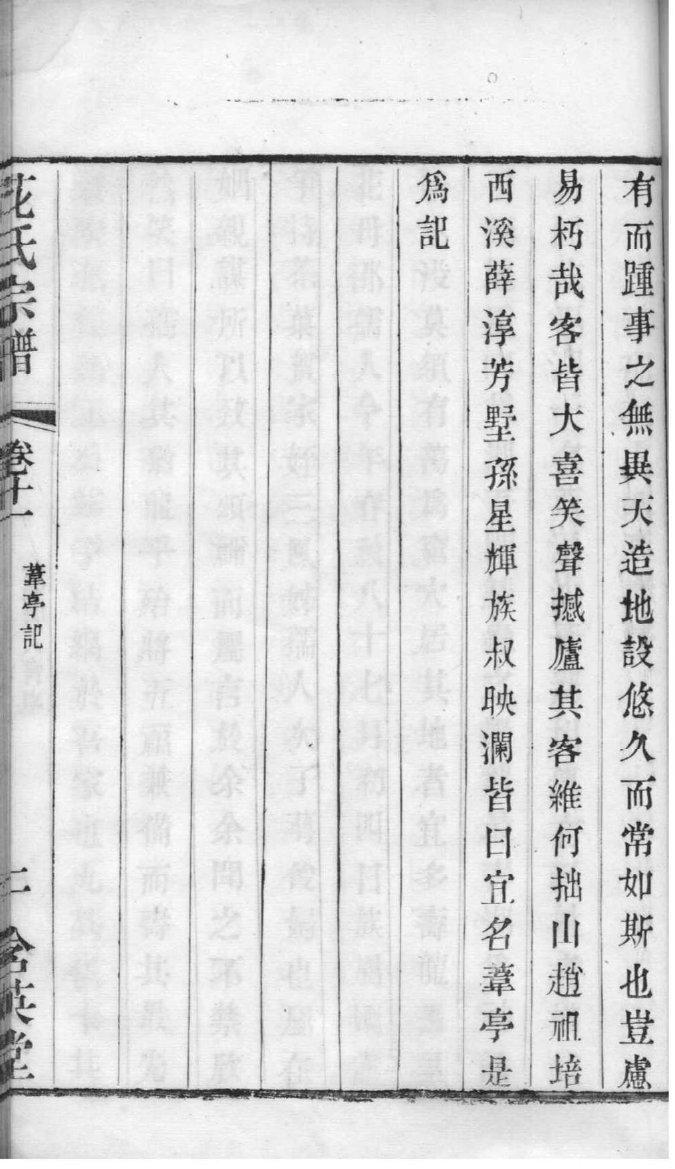 有而踵事之無異天造地設悠久而常如斯也豈慮
易朽哉客皆大喜笑聲撼廬其客維何拙山趙祖培
西溪薛淳芳墅孫星輝族叔映瀾皆曰宜名葦亭是
爲記
花氏宗譜
卷十一
葦亭記
二
含英堂